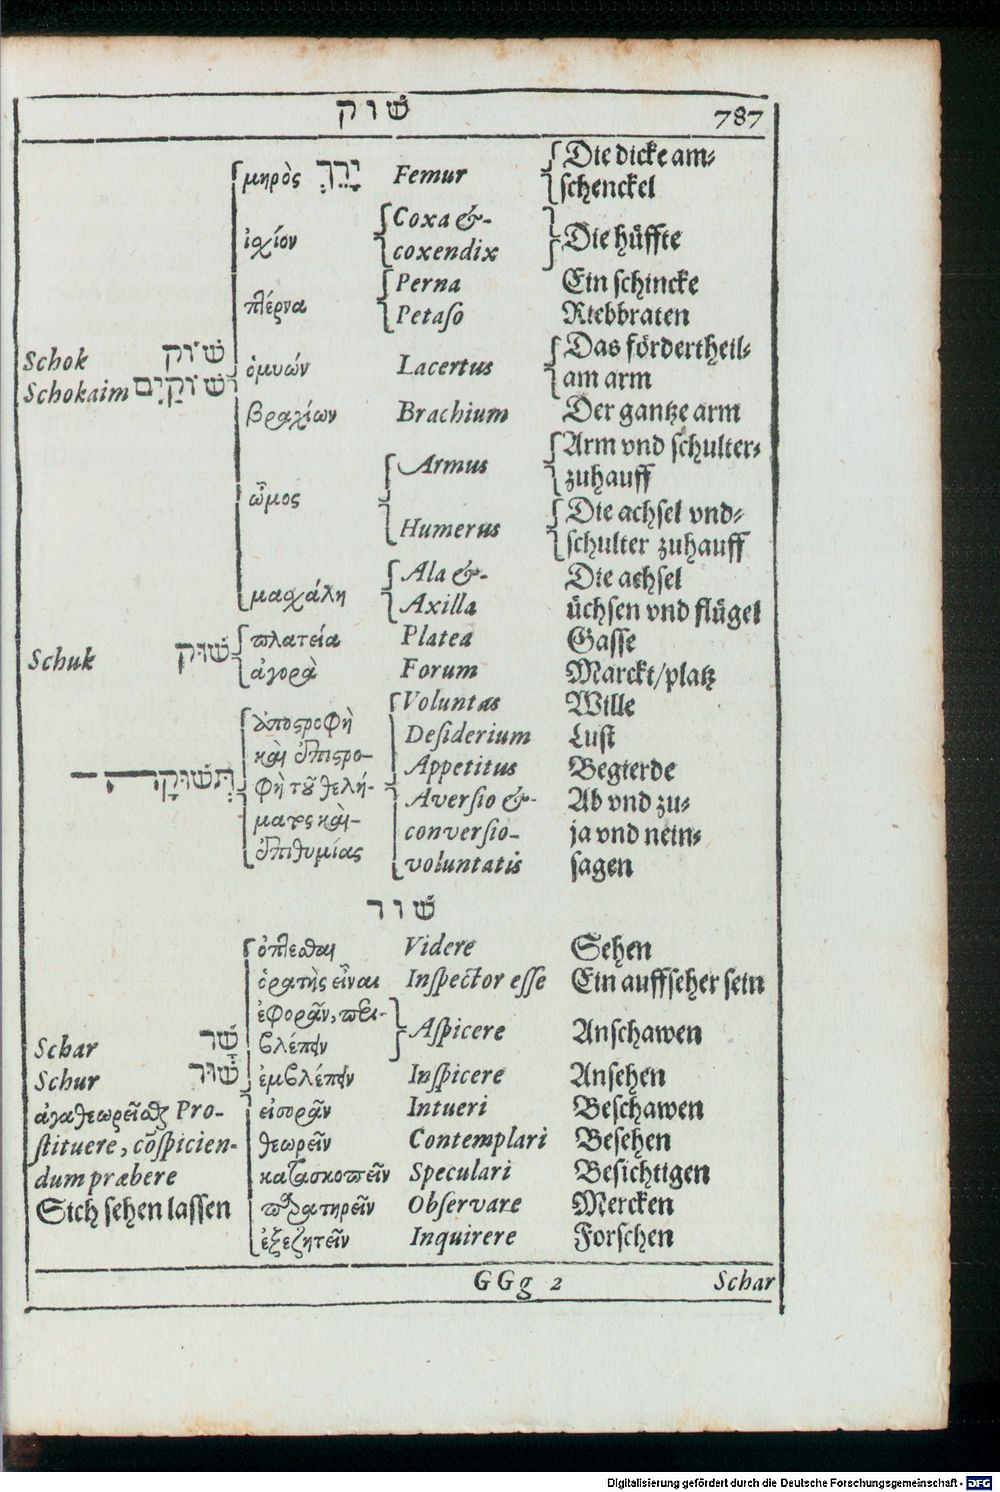 שׁוק 787
μηρὸς יָרֵךְ Femur Die dicke am-
schenckel
ἰχίον Coxa &-
coxendix Die hüffte
πέρνα Perna Ein schincke
Petaso Riebbraten
Schok שׁוֹק ὁμυών Lacertus Das fördertheil-
am arm
Schokaim שׁוֹקַיִם
βραχίων Brachium Der gantze arm
ὦμος Armus Arm vnd schulter-
zuhauff
Humerus Die achsel vnd-
schulter zuhauff
μασχάλη Ala &- Die achsel
Axilla üchsen vnd flügel
Schuk שׁוּק πλατεία Platea Gasse
ἀγορὰ Forum Marckt/platz
תְּשׁוּקָה ἀποςροφὴ Voluntas Wille
καὶ ἐπιςρο- Desiderium Lust
φὴ τοῦ θελή- Appetitus Begierde
ματος καὶ- Aversio &- Ab vnd zu-
ἐπιθυμίας conversio- ja vnd nein-
voluntatis sagen
שׁור
ὄπτεσθαι Videre Sehen
ὁρατὴς εἶναι Inspector esse Ein auffseher sein
ἐφορᾶν, περι-
βλέπειν Aspicere Anschawen
Schar שָׁר
Schur שׁוּר ἐμβλέπειν Inspicere Ansehen
ἀγαθεωρεῖσθαι Pro- εἰσορᾶν Intueri Beschawen
stituere, cōspicien- θεωρεῖν Contemplari Besehen
dum præbere κατασκοπεῖν Speculari Besichtigen
Sich sehen lassen παρατηρεῖν Observare Mercken
ἐξεζητεῖν Inquirere Forschen
GGg 2 Schar
Digitalisierung gefördert durch die Deutsche Forschungsgemeinschaft - DFG